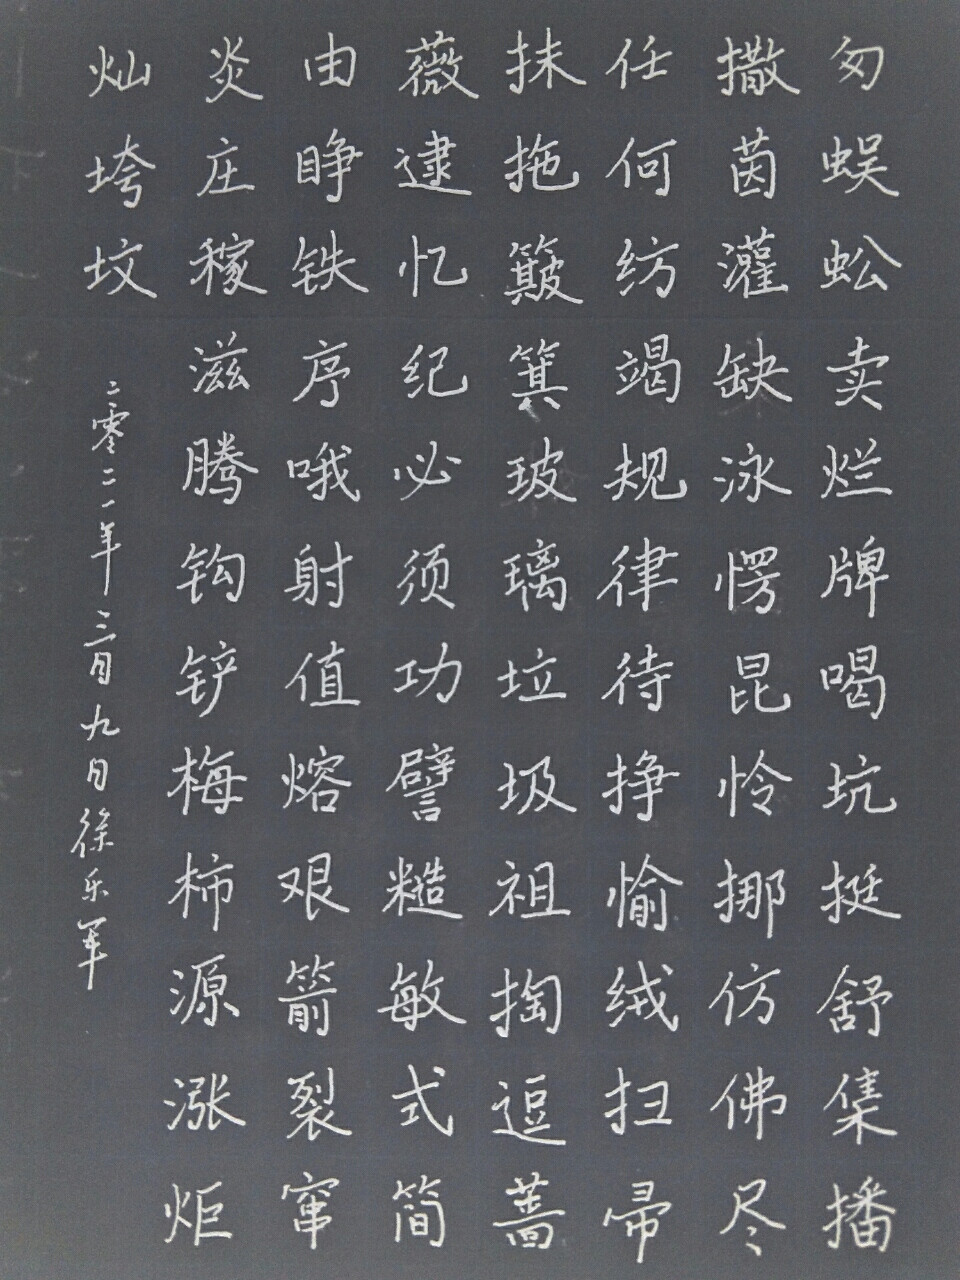 匆蜈蚣卖烂牌喝坑挺舒集播
撒茵灌缺泳愣昆怜挪仿佛尽
任何纺竭规律待挣愉绒扫帚
抹拖簸箕玻璃垃圾祖掏逗蔷
薇逮忆纪必须功譬糙敏式简
由睁铁序哦射值熔艰箭裂窜
炎庄稼滋腾钩铲梅柿源涨炬
灿垮坟
二零二一年三月九日徐乐军